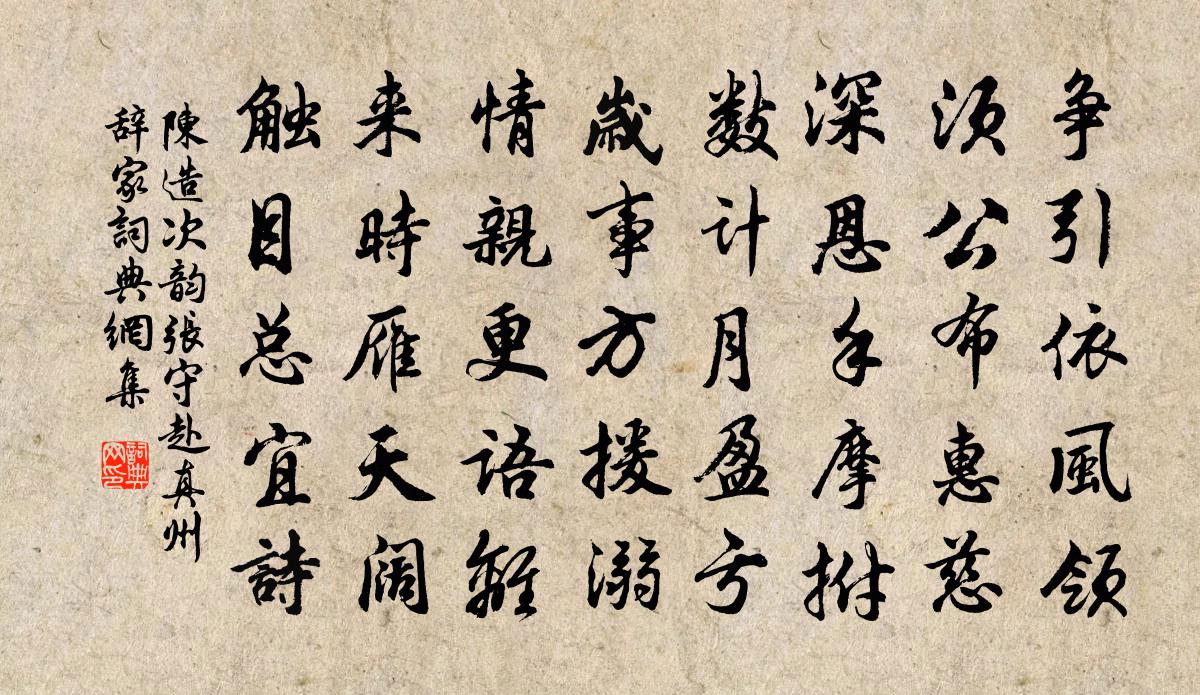 争引依風领
须公布惠慈
深恩手摩拊
数计月盈亏
歲事方援溺
情親更语離
来時雁天阔
触目总宜詩
陳造次韵張守赴真州
辞家詞典網集
詞典網印